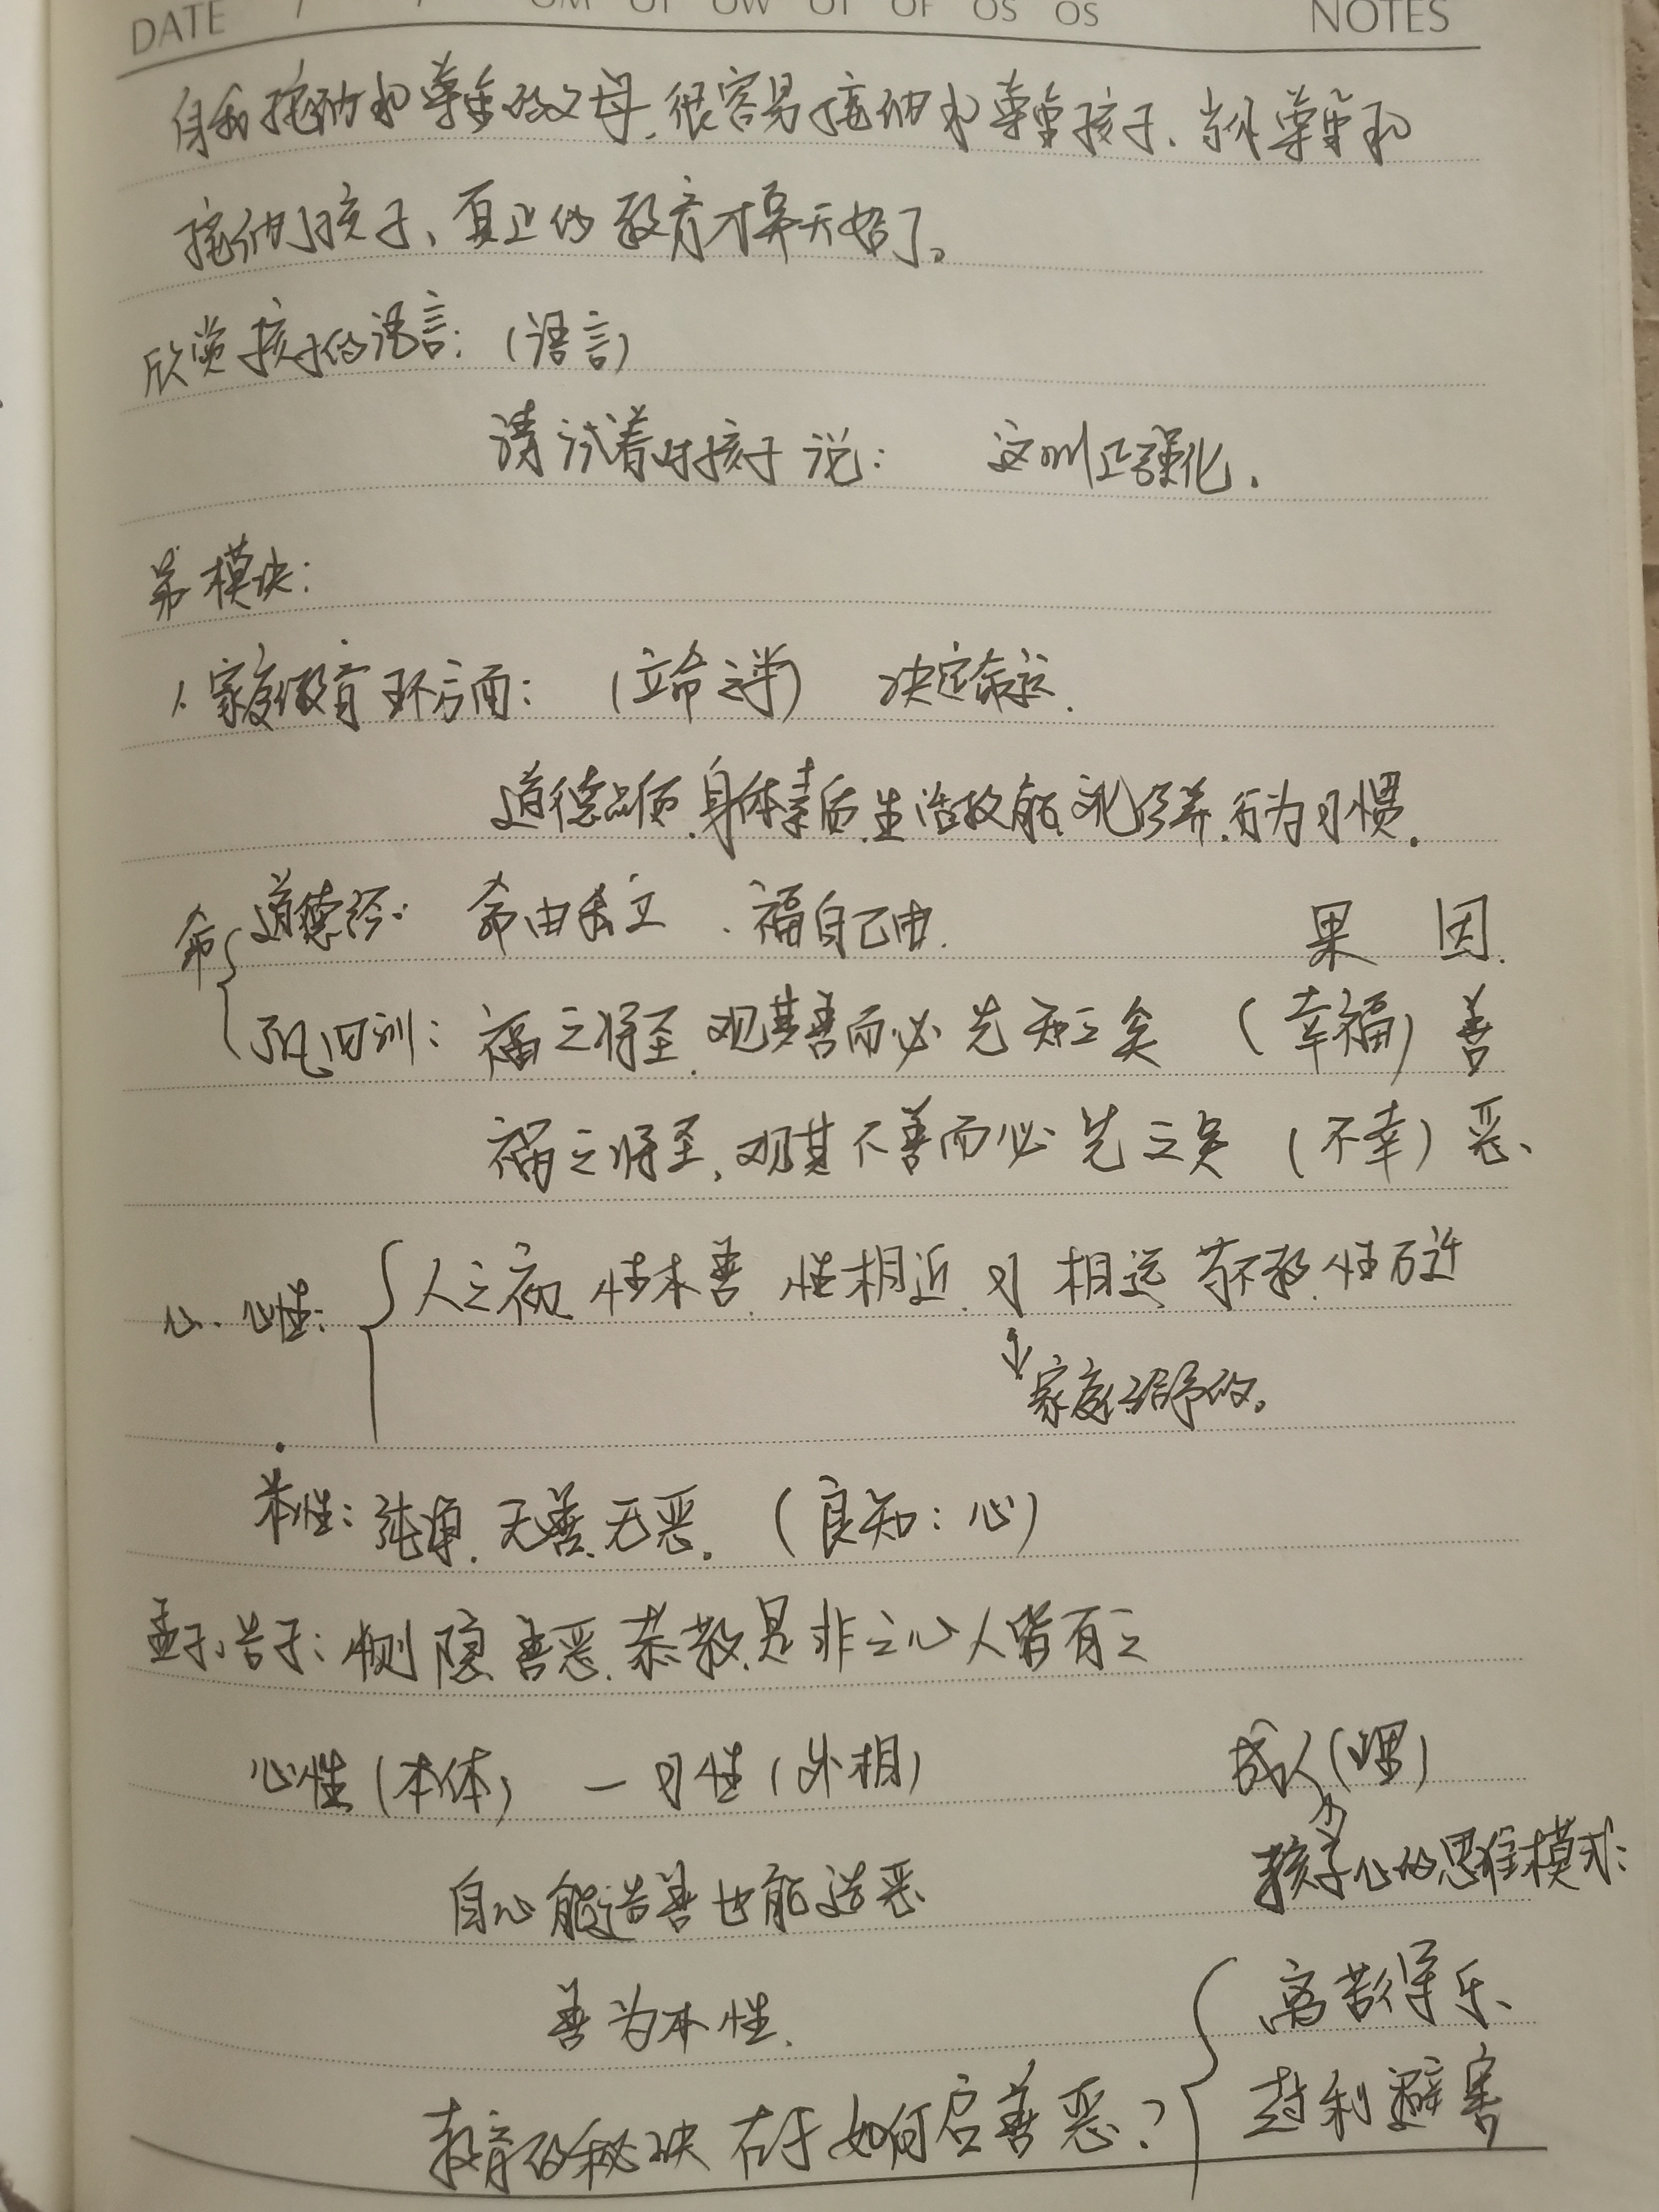 DATE / / NOTES
自我接纳和尊重的父母,很容易接纳和尊重孩子、当你尊重和
接纳了孩子、真正的教育才算开始了。
欣赏孩子的语言:(语言)
请试着对孩子说: 这叫正强化.
第 模块:
1、家庭教育 方面:(立命之学) 决定命运.
道德品质、身体素质、生活技能、文化修养、行为习惯.
命 道德经: 命由我立、福自己由. 果 因.
训: 福之将至,观其善而必先知之矣 (幸福) 善
祸之将至,观其不善而必先之矣 (不幸) 恶、
心、心性: 人之初 性本善、性相近、习 相远 苟不教、性乃迁
↓家庭给予的。
本性: 纯净、无善、无恶。(良知:心)
孟子、告子: 恻隐、善恶、恭敬、是非之心人皆有之
心性(本体) — 习性(外相) 成人(果)
自心能造善也能造恶 孩子心的思维模式:
善为本性、 离苦得乐、
教育的秘诀在于如何启善恶? 趋利避害